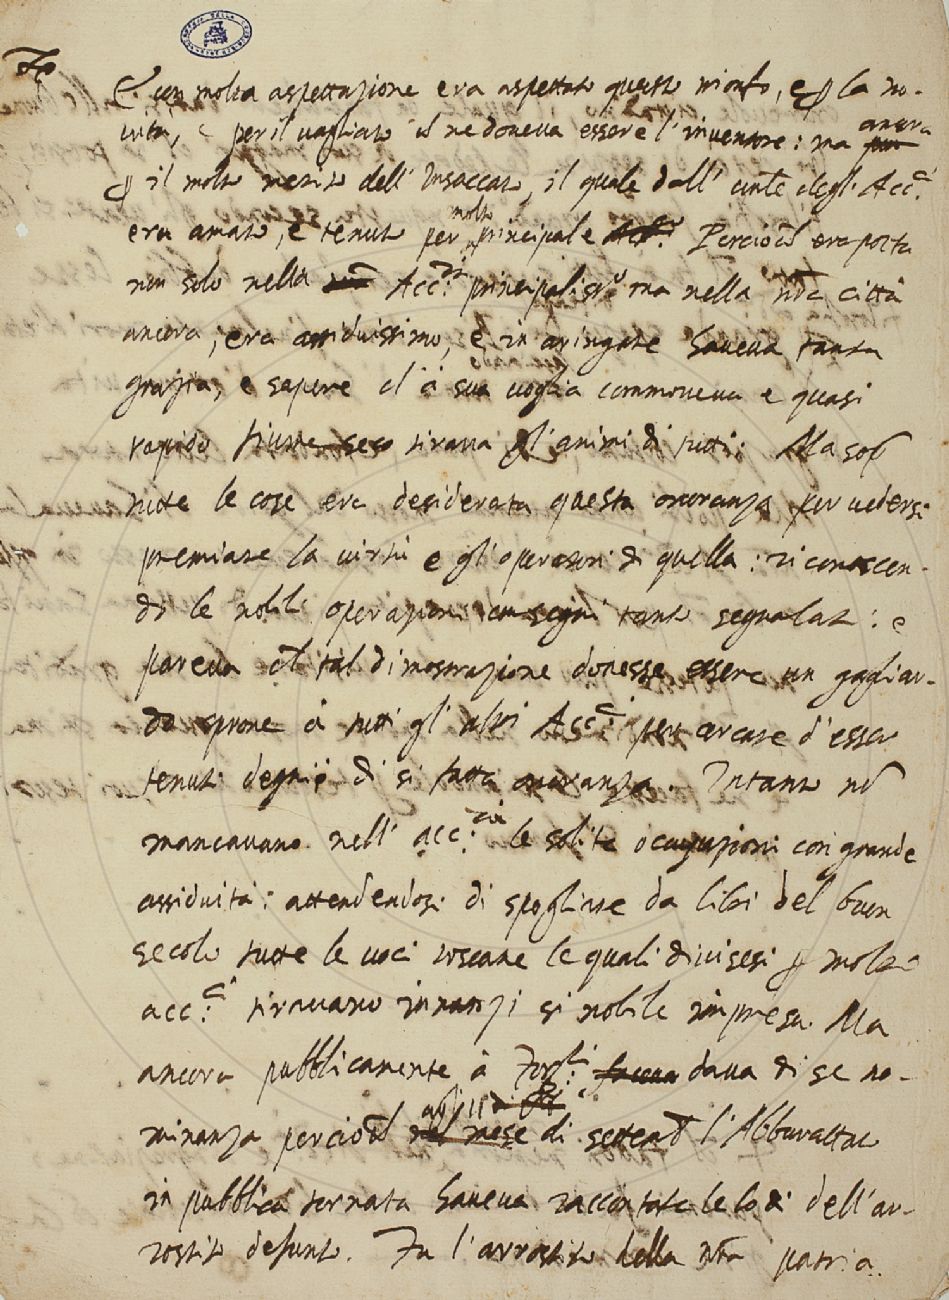 E con molta aspettazione era aspettato questo trionfo, e p la no-
vità, e per il vagliato ch ne doveva essere l'inventore: ma ancora
p il molto merito dell'Insaccato, il quale dall' univ.le degl'Acc.ci
era amato, e tenuto per molto principale Perciochè era posta
non solo nella Acc.ia principaliss.o ma nella nra città
ancora, era assiduissimo, e in aringare haveva tanta
grazia, e sapere ch à sua voglia commoveva e quasi
rapido fiume seco tirava gl'animi di tutti: Ma sop
tutte le cose era desiderata questa onoranza per vedersi
premiare la virtù e gl'operatori di quella: riconoscen-
do le nobili operazioni con segni tanto segnalati: e
pareva ch tal dimostrazione dovesse essere un gagliar-
do sprone à tutti gl'altri Acc.ci per cercare d'esser
tenuti degni di si fatta onoranza. Intanto nō
mancavano nell'acc.ia le solite occupazioni con grande
assiduità: attendendosi di spogliare da libri del buon
secolo tutte le voci toscane le quali divisesi p molti
acc.ci tiravano innanzi si nobile impresa. Ma
ancora pubblicamente à dava di se no-
minanza perciochè agli 11 di settemb l'Abburattato
in pubblica tornata haveva raccontate le lodi dell'ar-
rostito defunto. Fu l'arrostito della nra patria